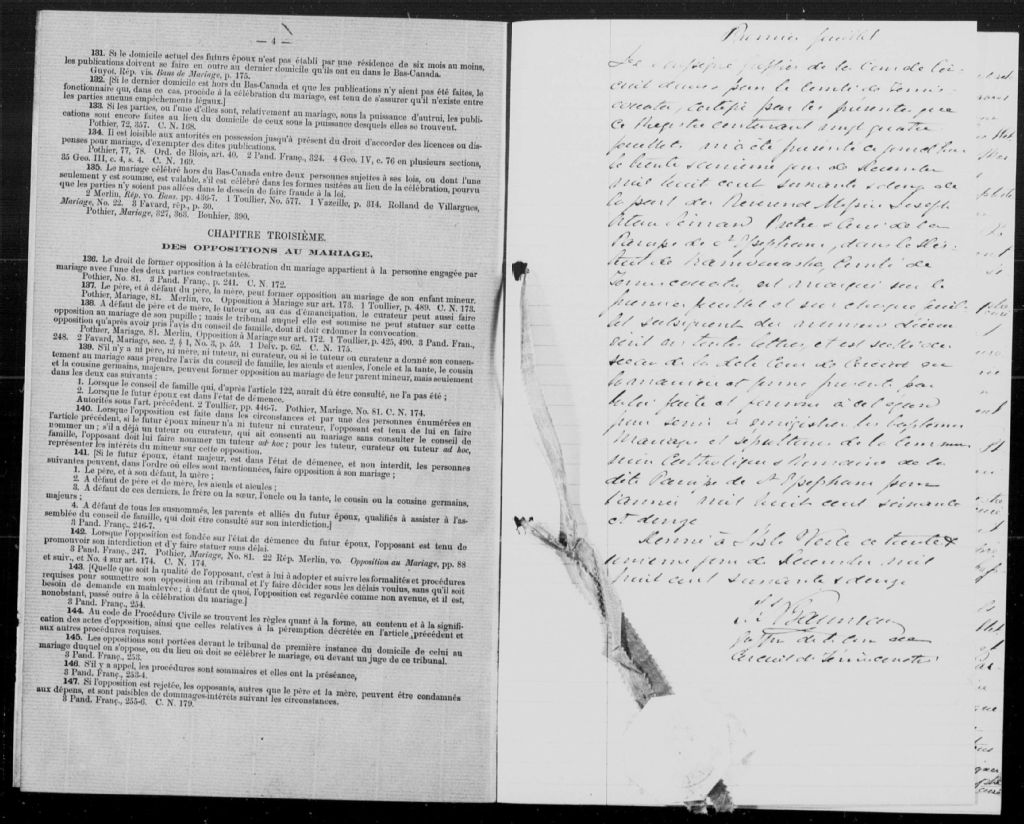 — 4 —
131. Si le domicile actuel des futurs époux n'est pas établi par une résidence de six mois au moins,
les publications doivent se faire en outre au dernier domicile qu'ils ont eu dans le Bas-Canada.
Guyot, Rép. vis. Bans de Mariage, p. 175.
132. [Si le dernier domicile est hors du Bas-Canada et que les publications n'y aient pas été faites, le
fonctionnaire qui, dans ce cas, procède à la célébration du mariage, est tenu de s'assurer qu'il n'existe entre
les parties aucuns empêchements légaux.]
133. Si les parties, ou l'une d'elles sont, relativement au mariage, sous la puissance d'autrui, les publi-
cations sont encore faites au lieu du domicile de ceux sous la puissance desquels elles se trouvent.
Pothier, 72, 357. C. N. 168.
134. Il est loisible aux autorités en possession jusqu'à présent du droit d'accorder des licences ou dis-
penses pour mariage, d'exempter des dites publications.
Pothier, 77, 78. Ord. de Blois, art. 40. 2 Pand. Franç., 324. 4 Geo. IV, c. 76 en plusieurs sections,
35 Geo. III, c. 4, s. 4. C. N. 169.
135. Le mariage célébré hors du Bas-Canada entre deux personnes sujettes à ses lois, ou dont l'une
seulement y est soumise, est valable, s'il est célébré dans les formes usitées au lieu de la célébration, pourvu
que les parties n'y soient pas allées dans le dessein de faire fraude à la loi.
2 Merlin, Rép. vo. Bans. pp. 436-7. 1 Toullier, No. 577. 1 Vazeille, p. 314. Rolland de Villargues,
Mariage, No. 22. 3 Favard, rép., p. 30.
Pothier, Mariage, 327, 363. Bouhier, 390.
CHAPITRE TROISIÈME.
DES OPPOSITIONS AU MARIAGE.
136. Le droit de former opposition à la célébration du mariage appartient à la personne engagée par
mariage avec l'une des deux parties contractantes.
Pothier, No. 81. 3 Pand. Franç., p. 241. C. N. 172.
137. Le père, et à défaut du père, la mère, peut former opposition au mariage de son enfant mineur.
Pothier, Mariage, 81. Merlin, vo. Opposition à Mariage sur art. 173. 1 Toullier, p. 489. C. N. 173.
138. A défaut de père et de mère, le tuteur ou, au cas d'émancipation, le curateur peut aussi faire
opposition au mariage de son pupille; mais le tribunal auquel elle est soumise ne peut statuer sur cette
opposition qu'après avoir pris l'avis du conseil de famille, dont il doit ordonner la convocation.
Pothier, Mariage, 81. Merlin, Opposition à Mariage sur art. 172. 1 Toullier, p. 425, 490. 3 Pand Fran.,
248. 2 Favard, Mariage, sec. 2, § 1, No. 3, p. 59. 1 Delv. p. 62. C. N. 175.
139. S'il n'y a ni père, ni mère, ni tuteur, ni curateur, ou si le tuteur ou curateur a donné son consen-
tement au mariage sans prendre l'avis du conseil de famille, les aïeuls et aïeules, l'oncle et la tante, le cousin
et la cousine germains, majeurs, peuvent former opposition au mariage de leur parent mineur, mais seulement
dans les deux cas suivants:
1. Lorsque le conseil de famille qui, d'après l'article 122, aurait dû être consulté, ne l'a pas été;
2. Lorsque le futur époux est dans l'état de démence.
Autorités sous l'art. précédent. 2 Toullier, pp. 446-7. Pothier, Mariage, No. 81. C. N. 174.
140. Lorsque l'opposition est faite dans les circonstances et par une des personnes énumérées en
l'article précédent, si le futur époux mineur n'a ni tuteur ni curateur, l'opposant est tenu de lui en faire
nommer un; s'il a déjà un tuteur ou curateur, qui ait consenti au mariage sans consulter le conseil de
famille, l'opposant doit lui faire nommer un tuteur ad hoc; pour les tuteur, curateur ou tuteur ad hoc,
représenter les intérêts du mineur sur cette opposition.
141. [Si le futur époux, étant majeur, est dans l'état de démence, et non interdit, les personnes
suivantes peuvent, dans l'ordre où elles sont mentionnées, faire opposition à son mariage;
1. Le père, et à son défaut, la mère;
2. A défaut de père et de mère, les aïeuls et aïeules;
3. A défaut de ces derniers, le frère ou la sœur, l'oncle ou la tante, le cousin ou la cousine germains,
majeurs;
4. A défaut de tous les susnommés, les parents et alliés du futur époux, qualifiés à assister à l'as-
semblée du conseil de famille, qui doit être consulté sur son interdiction.]
3 Pand. Franç., 246-7.
142. Lorsque l'opposition est fondée sur l'état de démence du futur époux, l'opposant est tenu de
promouvoir son interdiction et d'y faire statuer sans délai.
3 Pand. Franç., 247. Pothier, Mariage, No. 81. 22 Rép. Merlin, vo. Opposition au Mariage, pp. 88
et suiv., et No. 4 sur art. 174. C. N. 174.
143. [Quelle que soit la qualité de l'opposant, c'est à lui à adopter et suivre les formalités et procédures
requises pour soumettre son opposition au tribunal et l'y faire décider sous les délais voulus, sans qu'il soit
besoin de demande en mainlevée; à défaut de quoi, l'opposition est regardée comme non avenue, et il est,
nonobstant, passé outre à la célébration du mariage.]
3 Pand. Franç., 254.
144. Au code de Procédure Civile se trouvent les règles quant à la forme, au contenu et à la signifi-
cation des actes d'opposition, ainsi que celles relatives à la péremption décrétée en l'article précédent et
aux autres procédures requises.
145. Les oppositions sont portées devant le tribunal de première instance du domicile de celui au
mariage duquel on s'oppose, ou du lieu où doit se célébrer le mariage, ou devant un juge de ce tribunal.
3 Pand. Franç., 253.
146. S'il y a appel, les procédures sont sommaires et elles ont la préséance,
3 Pand. Franç., 253-4.
147. Si l'opposition est rejetée, les opposants, autres que le père et la mère, peuvent être condamnés
aux dépens, et sont paisibles de dommages-intérêts suivant les circonstances.
3 Pand. Franç., 255-6. C. N. 179.
Premier feuillet
Je soussigné greffier de la Cour de Cir-
cuit dans pour le Comté de Témis-
couata, certifie par les présentes que
ce Registre contenant vingt quatre
feuillets m'a été présenté ce jourd'hui
le trente unième jour de Décembre
mil huit cent soixante & douze de
la part du Révérend Messire Joseph
Prêtre & Curé de la
Paroisse de St Epiphane, dans le Dis-
trict de Kamouraska, Comté de
Témiscouata, est marqué sur le
premier feuillet et sur chaque feuil-
let subséquent du numéro d'icelui
écrit en toutes lettres, et est scellé du
sceau de la dite Cour de Circuit en
la manière et forme prescrite par
la loi faite et à cet égard
pour servir à enregistrer les baptêmes
Mariages et sépultures de la Commu-
nion Catholique & Romaine de la
dite Paroisse de St Epiphane pour
l'année mil huit cent soixante
et douze
Donné à l'Isle Verte ce trente &
unième jour de Décembre mil
huit cent soixante & douze
Greffier de la Cour de
Circuit de Témiscouata